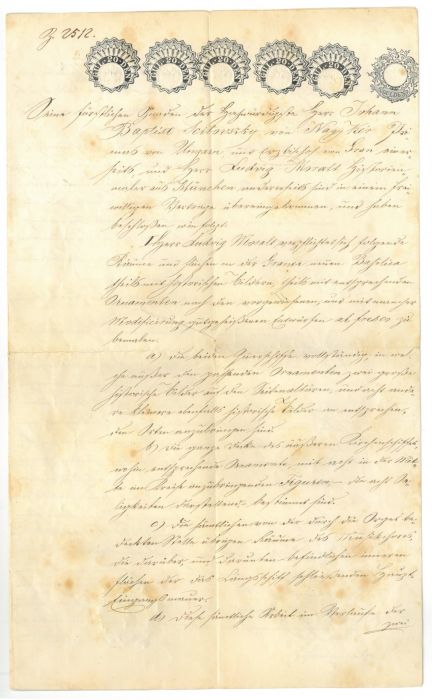 Z. 2512.
Seine fürstlichen Gnaden der Hochwürdigste Herr Johann
Baptist Scitovszky von Nagy Kér Pri-
mas von Ungarn und Erzbischof von Gran einer-
seits, und Herr Ludwig Moralt Historien-
maler aus München andererseits sind in einem frei-
willigen Vertrage übereingekommen, und haben
beschloßen wie folgt.
I Herr Ludwig Moralt verpflichtet sich folgende
Räume und Flächen in der Graner neuen Basilica
theils mit historischen Bildern, theils mit entsprechenden
Ornamenten nach den vorgewiesenen, und mit einer
Modificirung gutgeheißenen Entwürfen al fresco zu
bemalen.
a) die beiden Querschiffe vollständig, in wel-
che außer den passenden Ornamenten zwei große
historische Bilder auf den Seitenaltären, und acht ande-
re kleinere ebenfalls historische Bilder an entsprechen-
den Orten anzubringen sind.
b) Die ganze Decke des äußeren Kirchenschiffes
wohin entsprechende Ornamente, mit acht in der Mit-
te im Kreise anzubringenden Figuren – die acht Se-
ligkeiten darstellend – bestimmt sind.
c) Die sämtlichen von der durch die Orgel be-
deckten Stelle übrigen Räume des Musikchores,
die darüber und darunter befindlichen inneren
Flächen der das Langschiff schließenden Haupt-
Eingangsmauer.
d) Diese sämtliche Arbeit im Verlaufe der
zwei